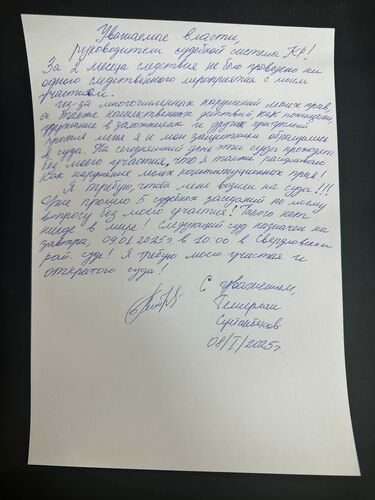 Уважаемые власти,
руководители судебной системы КР!
За 2 месяца следствия не было проведено ни
одного следственного мероприятия с моим
участием.
Из-за многочисленных нарушений моих прав,
а также насильственных действий как похищение,
удержание в заложниках и других
против меня я и мои защитники обращались
в суды. На сегодняшний день эти суды проходят
без моего участия, что я также расцениваю
как нарушение моих конституционных прав!
Я требую, чтобы меня возили на суда!!!
Уже прошло 5 судебных заседаний по моему
вопросу без моего участия! Такого нет
нигде в мире! Следующий суд назначен на
завтра, 09.01.2025г в 10.00 в Свердловском
рай. суде! Я требую моего участия и
открытого суда!
С уважением,
Темирлан
Султанбеков
08/I/2025г.